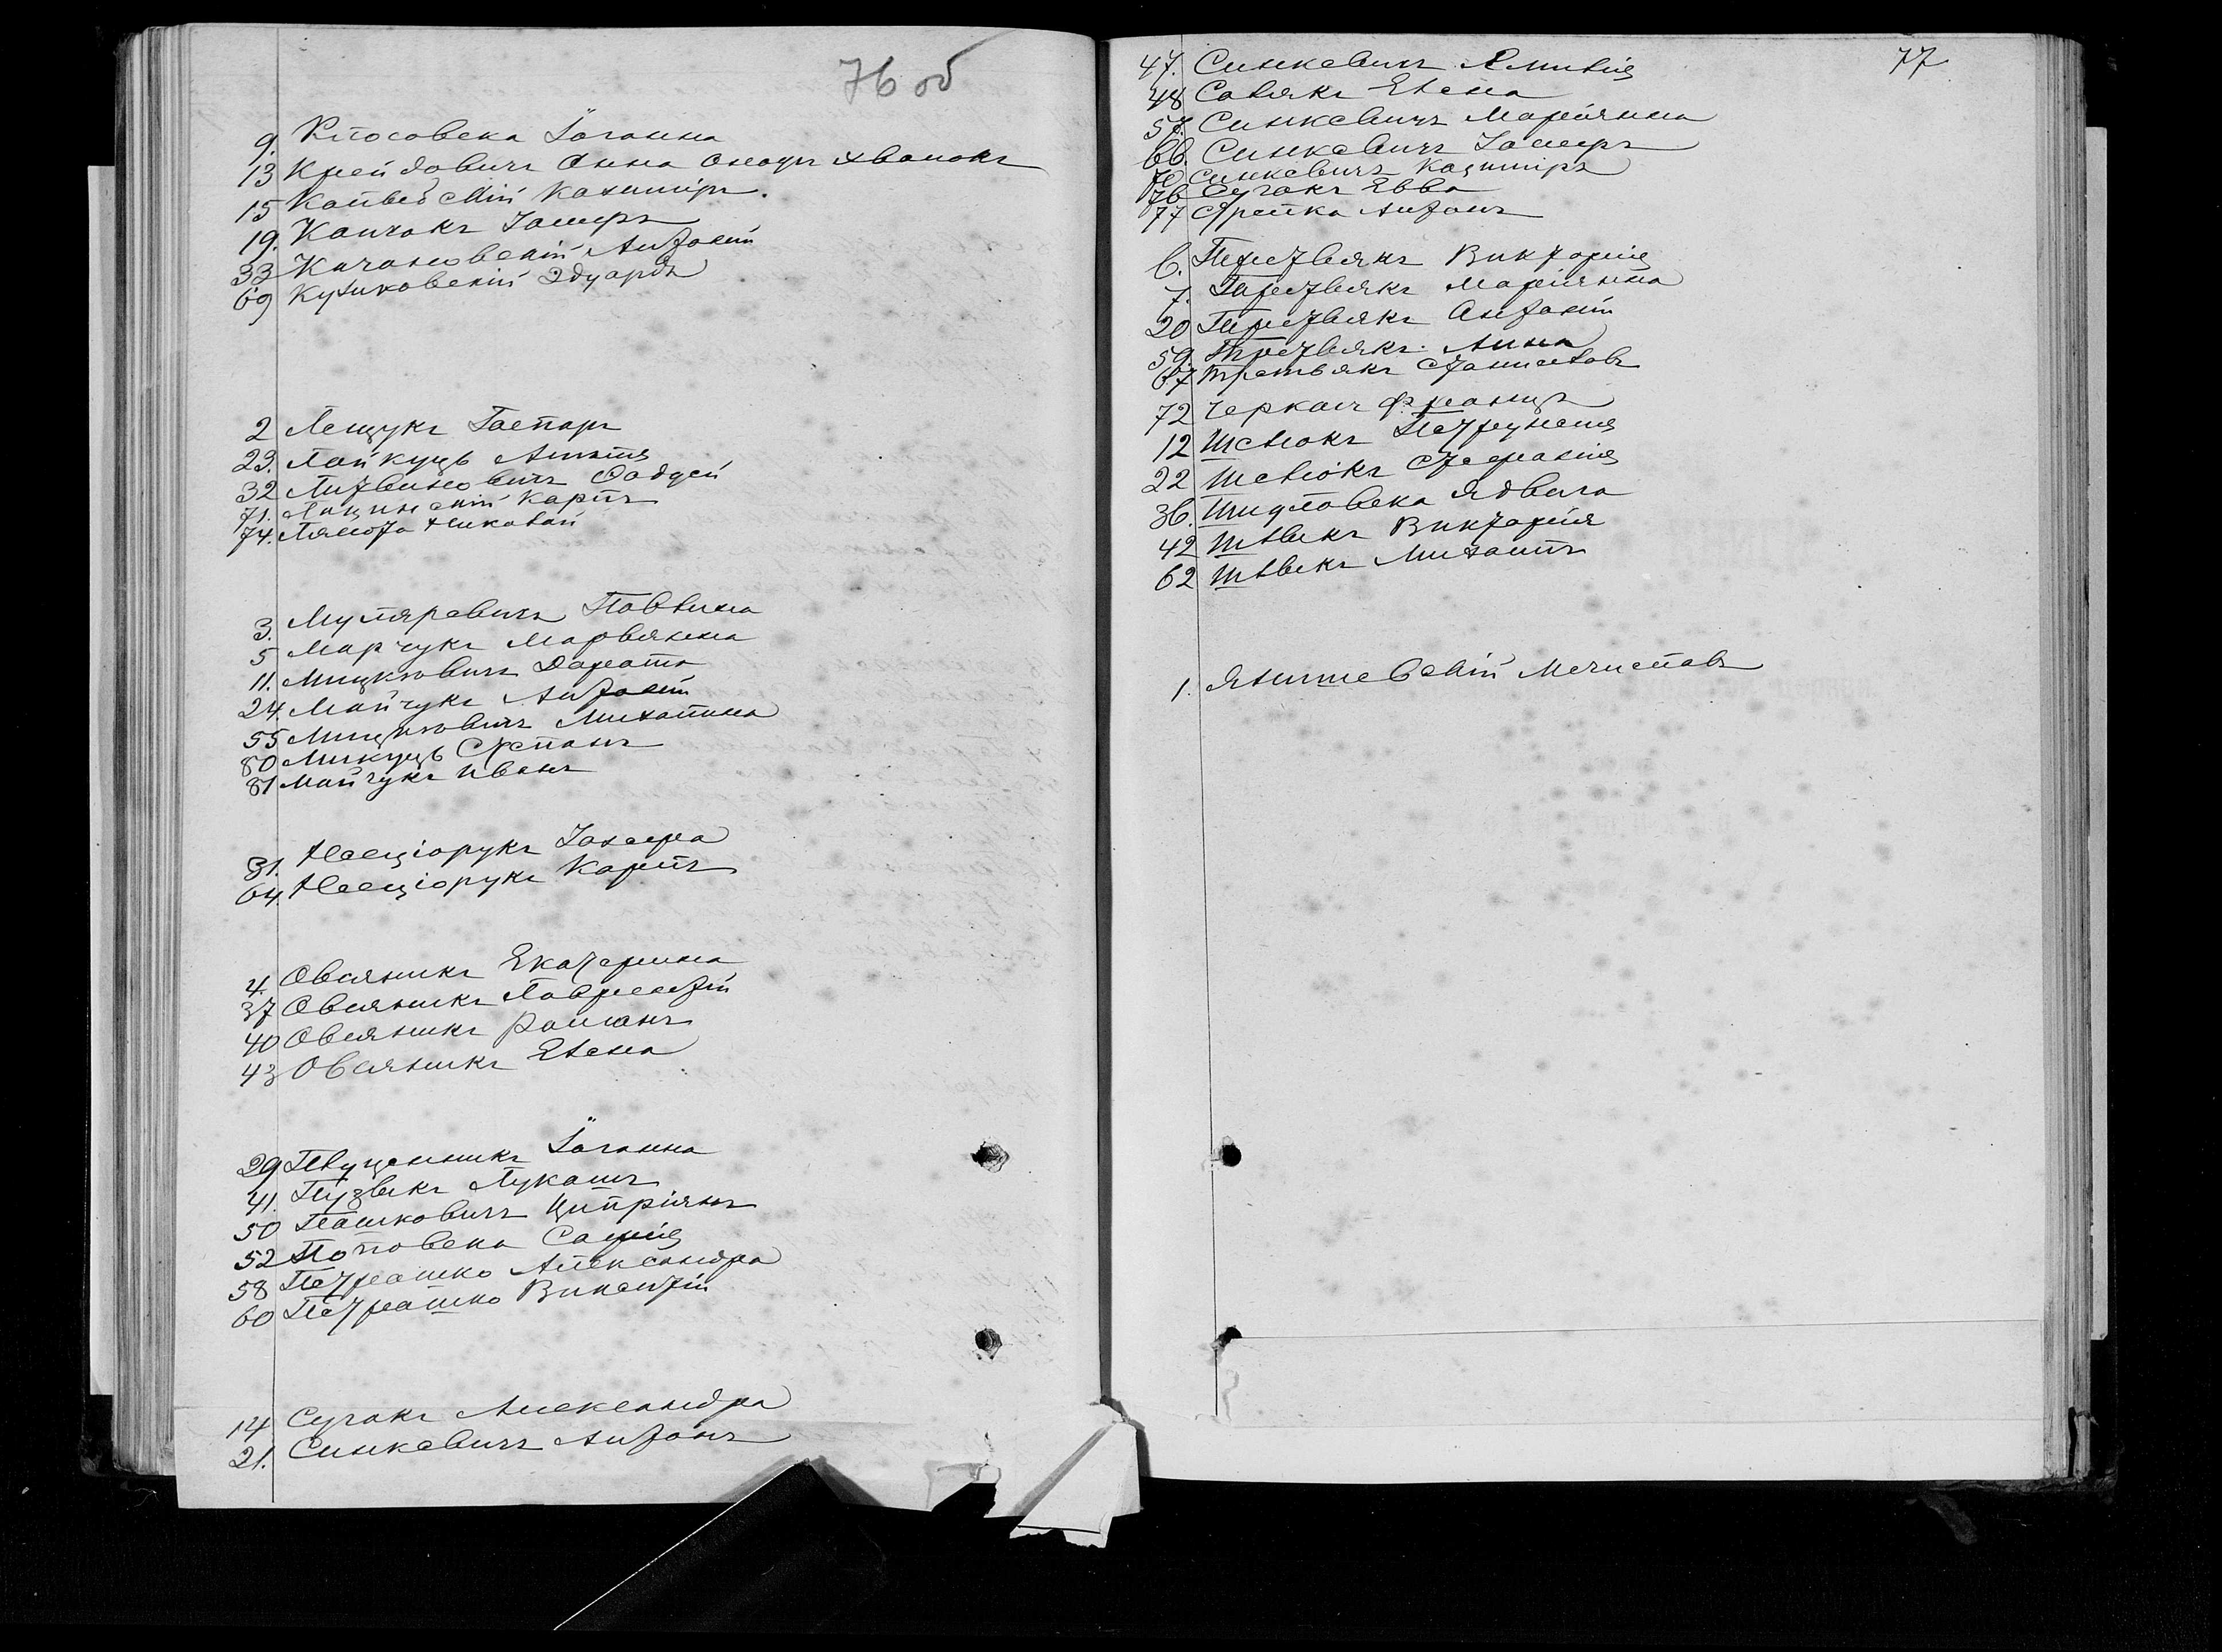 76 об
9. Клосовска Іоганна
13 Крейдович Анна
15 Кольвейскій Казиміръ.
19. Канчакъ Іосифъ
33 Качановскій Антоній
69 Куликовскій Эдуардъ
2 Лещукъ Гаспаръ
23. Лайкуць Амалія
32 Литвиновичъ Фадѣй
71. Карлъ
74. Николай
3. Муляревичъ Павлина
5 Марчукъ Марьянна
11. Мицкювичъ Дарата
24. Майчукъ Антоній
55 Мицкювичъ Михалина
80 Микуць Степанъ
81 Майчукъ Иванъ
31. Несцiорукъ Іозефа
64. Несцiорукъ Карлъ
4. Овсяникъ Екатерина
37 Овсяникъ Лаврентій
40 Овсяникъ Романъ
43 Овсяникъ Елена
29 Іоганна
41. Пузвикъ Лукашъ
50 Пашковичъ Ципріянъ
52 Поповска Софія
58 Петрашко Александра
60 Петрашко Викентій
14 Сугакъ Александра
21. Синкевичъ Антонъ
77
47. Синкевичъ Эмилія
48 Солякъ Елена
57. Синкевичъ Маріянна
66. Синкевичъ Іосифъ
70 Синкевичъ Казиміръ
76 Сугакъ Евва
77 Антонъ
6. Третьякъ Викторія
7. Третьякъ Маріянна
20 Третьякъ Антоній
59. Третьякъ Анна
67 Третьякъ Станиславъ
72 Черкасъ Францъ
12 Шелюкъ Петрунеля
22 Шелюкъ Стефанія
36. Шидловска Ядвига
42 Шлыкъ Викторія
62 Шлыкъ Михаилъ
1. Янишевскій Мечиславъ